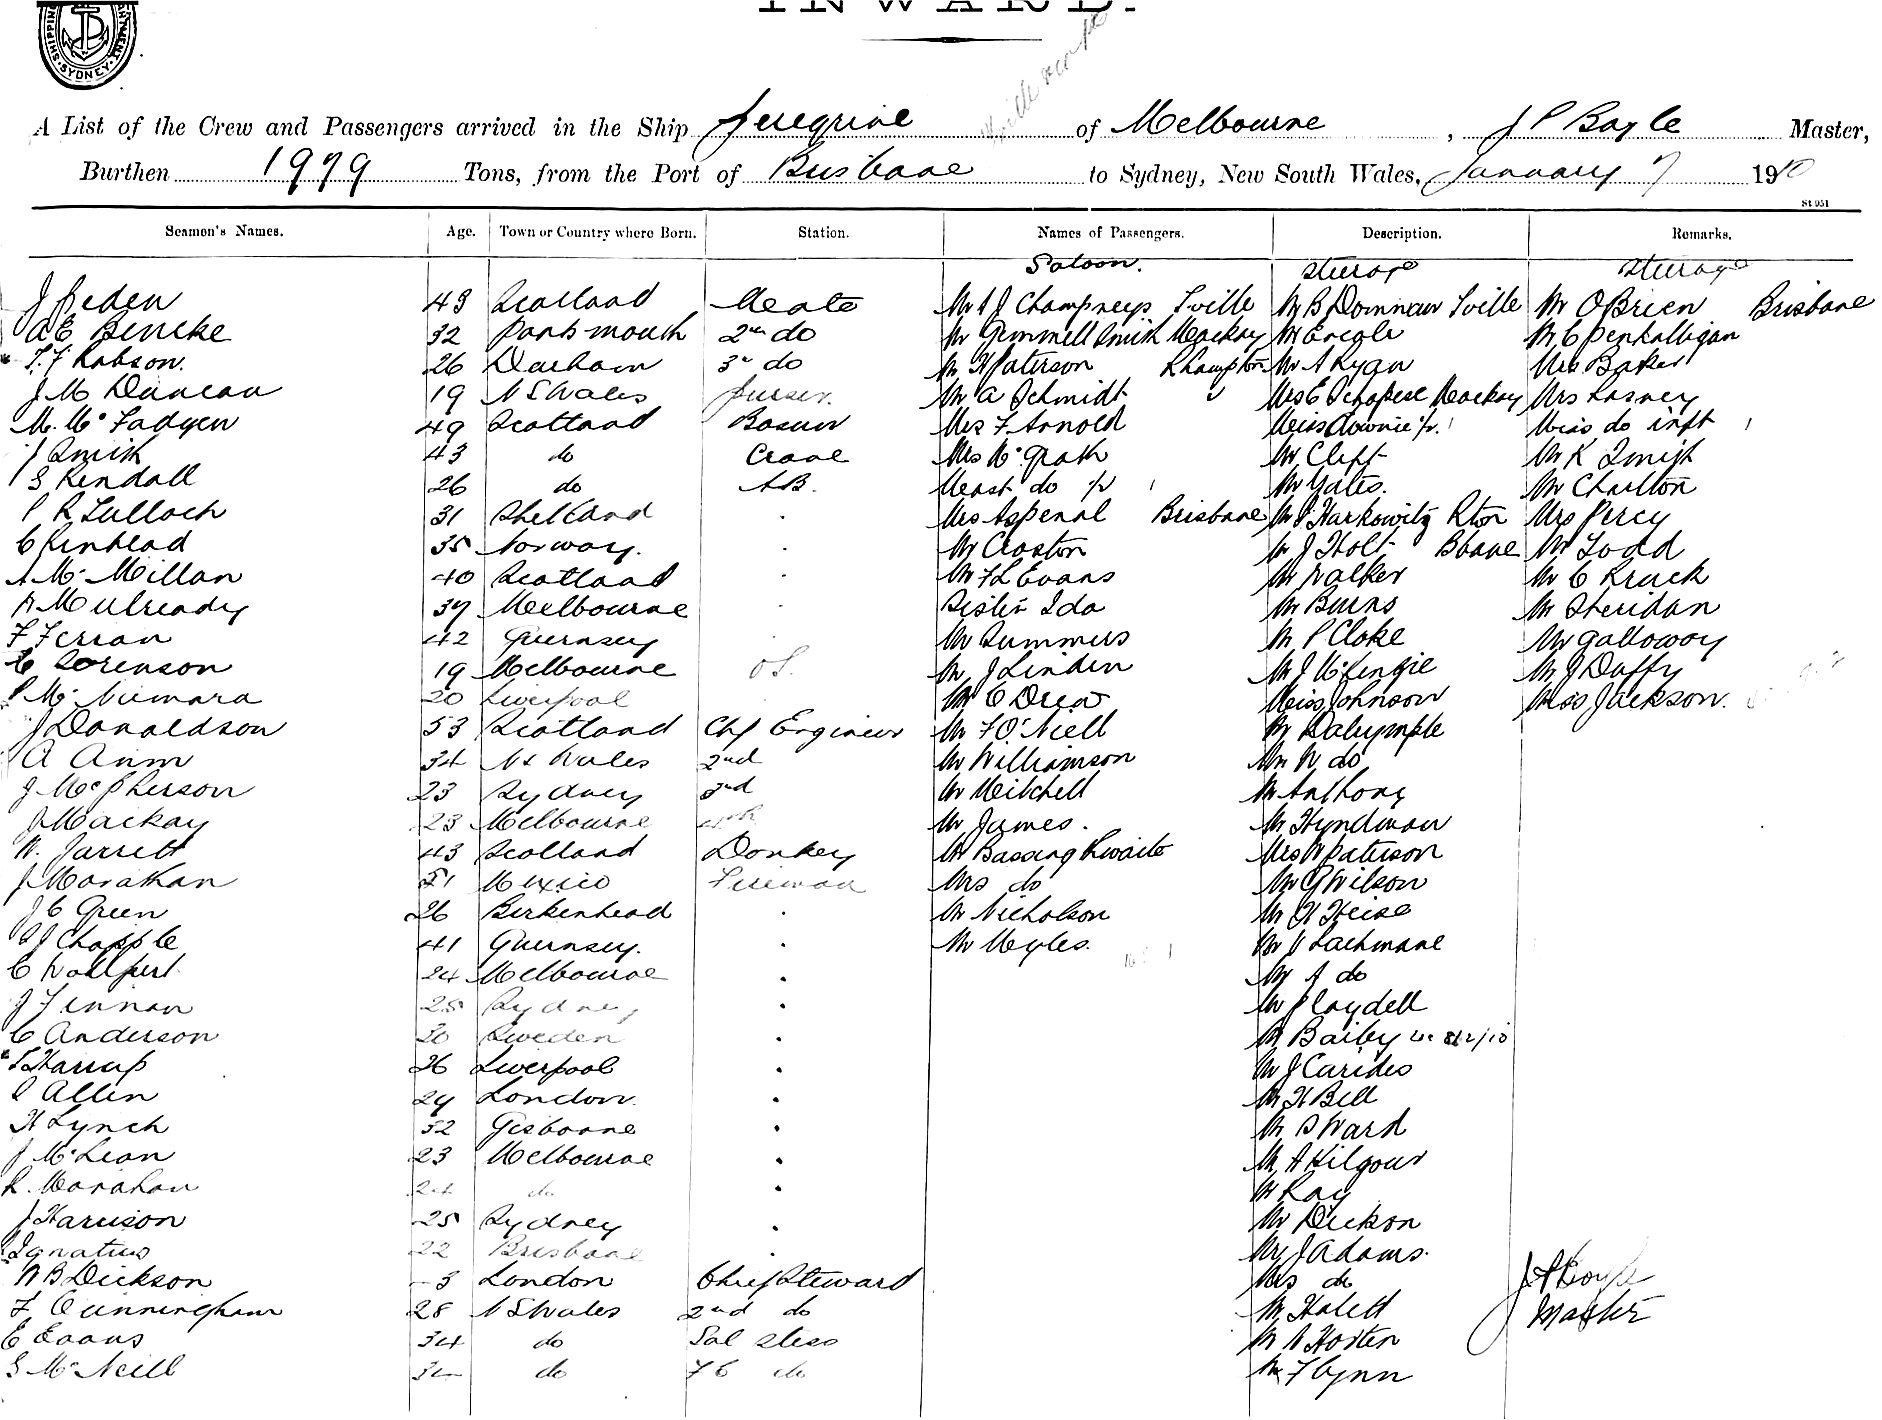 INWARD.
SHIPPING
SYDNEY
A List of the Crew and Passengers arrived in the Ship Peregrine of Melbourne, J P Boyle Master,
Burthen 1979 Tons, from the Port of Brisbane to Sydney, New South Wales, January 7 1910
St 051
Seamen's Names. Age. Town or Country where Born. Station. Names of Passengers. Description. Remarks.
Saloon. Steerage Steerage
J Peden 43 Scotland Mate Mr A J Champneys Tville Mr B Dominaw Tville Mr O'Brien Brisbane
A E Bencke 32 Portsmouth 2nd do Mr Gemmell Smith Mackay Mr Engole Mr C Penhalligan
T. F Robson. 26 Durham 3rd do Mr H Paterson Rhampton Mr A Ryan Mrs Baker
J M Duncan 19 N S Wales Purser. Mr A Schmidt Mrs E Schapese Mackay Mrs Lasney
M. McFadyen 49 Scotland Bosun Mrs F Arnold Miss Downie Miss do inft 1
J Smith 43 do Crane Mrs McGrath Mr Cliff Mr K Smith
S Kendall 26 do A.B. Mast do 1 Mr Yates. Mr Charlton
P R Tulloch 31 Shetland . Mrs Aspenal Brisbane Mr P Harkowitz Rton Mrs Percy
C Kinhead 35 Norway. . Mr Croston Mr J Holt Bbane Mr Todd
A McMillan 40 Scotland . Mr F L Evans Mr Walker Mr C Kruck
Mulready 39 Melbourne . Sister Ida Mr Burns Mr Sheridan
F Ferran 42 Guernsey . Mr Summers Mr P Cloke Mr Galloway
C Sorenson 19 Melbourne O.S. Mr J Linden Mr J McKenzie Mr J Duffy
P McNamara 20 Liverpool . Mr C Drew Miss Johnson Miss Jackson.
J Donaldson 53 Scotland Chf Engineer Mr F O'Niell Mr Dalrymple
A Anm 34 N S Wales 2nd Mr Williamson Mr W do
J McPherson 23 Sydney 3rd Mr Mitchell Mr Anthony
J Mackay 23 Melbourne 4th Mr James. Mr Hyndman
W. Jarrett 43 Scotland Donkey Mr Bassingthwaite Mrs W Paterson
J Monahan 51 Mexico Fireman Mrs do Mr G Wilson
J C Green 26 Birkenhead . Mr Nicholson Mr H Heise
J Chapple 41 Guernsey. . Mr Myles. Mr V Lachmane
C Wohlfurt 24 Melbourne . Mr A do
J Finnan 25 Sydney . Mr Playdell
C Anderson 30 Sweden . Mr Bailey 8/2/10
T Harrup 26 Liverpool . Mr J Carides
Allen 29 London. . Mr H Bell
H Lynch 32 Gisborne . Mr S Ward
J McLean 23 Melbourne . Mr A Kilgour
R. Monahan 24 do . Mr Ray
J Harrison 25 Sydney . Mr Dickson
Ignatius 22 Brisbane . Mr J Adams.
W B Dickson 3 London Chief Steward Mrs do J P Boyle
F Cunningham 28 N S Wales 2nd do Mr Halett Master
C Evans 34 do Sal stess Mr A Horten
S McNeill do F C do Mr Flynn